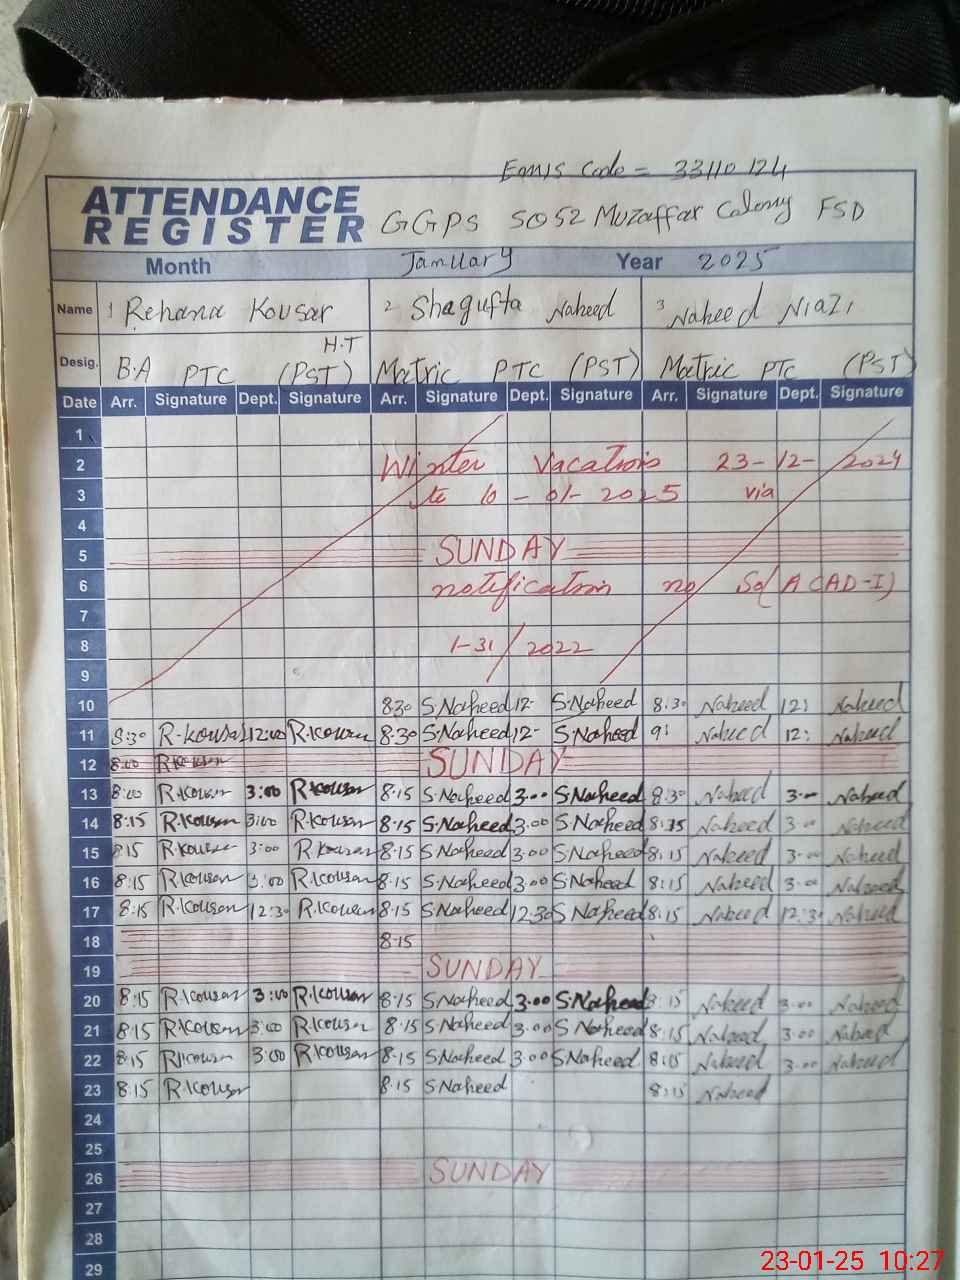 Emis Code = 33110124
ATTENDANCE REGISTER GGPS 5052 Muzaffar Colony FSD
Month January Year 2025
Name 1 Rehana Kousar 2 Shagufta Naheed 3 Naheed Niazi
H.T
Desig. B.A PTC (PST) Matric PTC (PST) Matric PTC (PST)
Date Arr. Signature Dept. Signature Arr. Signature Dept. Signature Arr. Signature Dept. Signature
1
2 Winter Vacations 23-12-2024
3 to 10-01-2025 via
4
5 SUNDAY
6 notification no So(ACAD-I)
7
8 1-31/2022
9
10 830 S.Naheed 12- S.Naheed 8:30 Naheed 12: Naheed
11 8:30 R-kousar 12:00 R.kousar 8:30 S.Naheed 12- S.Naheed 9: Naheed 12: Naheed
12 8:00 R.kousar SUNDAY
13 8:00 R.kousar 3:00 R.kousar 8.15 S.Naheed 3.00 S.Naheed 8:30 Naheed 3-00 Naheed
14 8:15 R.kousar 3:00 R.kousar 8.15 S.Naheed 3.00 S.Naheed 8:35 Naheed 3.00 Naheed
15 8:15 R.kousar 3:00 R.kousar 8.15 S.Naheed 3.00 S.Naheed 8:15 Naheed 3.00 Naheed
16 8:15 R.kousar 3:00 R.kousar 8.15 S.Naheed 3.00 S.Naheed 8:15 Naheed 3.00 Naheed
17 8:15 R.kousar 12:30 R.kousar 8.15 S.Naheed 12.30 S.Naheed 8:15 Naheed 12:30 Naheed
18 8.15
19 SUNDAY
20 8:15 R.kousar 3:00 R.kousar 8.15 S.Naheed 3.00 S.Naheed 8:15 Naheed 3.00 Naheed
21 8:15 R.kousar 3:00 R.kousar 8.15 S.Naheed 3.00 S.Naheed 8:15 Naheed 3:00 Naheed
22 8:15 R.kousar 3:00 R.kousar 8.15 S.Naheed 3.00 S.Naheed 8:15 Naheed 3.00 Naheed
23 8:15 R.kousar 8.15 S.Naheed 8:15 Naheed
24
25
26 SUNDAY
27
28
29
23-01-25 10:27